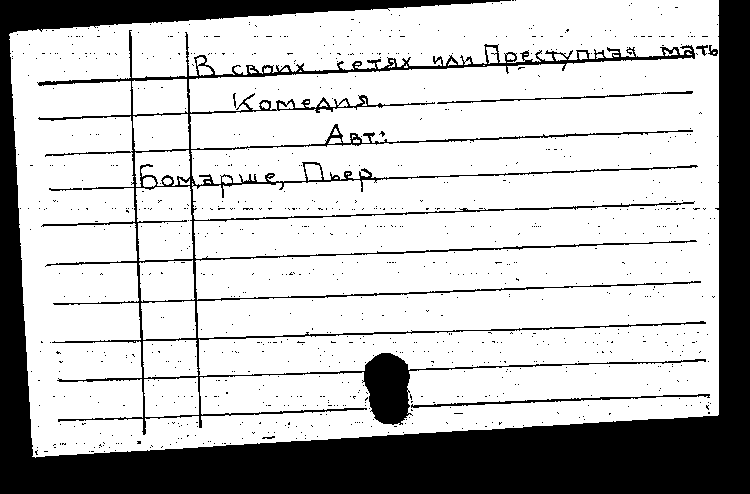 В своих сетях или Преступная мать
Комедия.
Авт.:
Бомарше, Пьер.